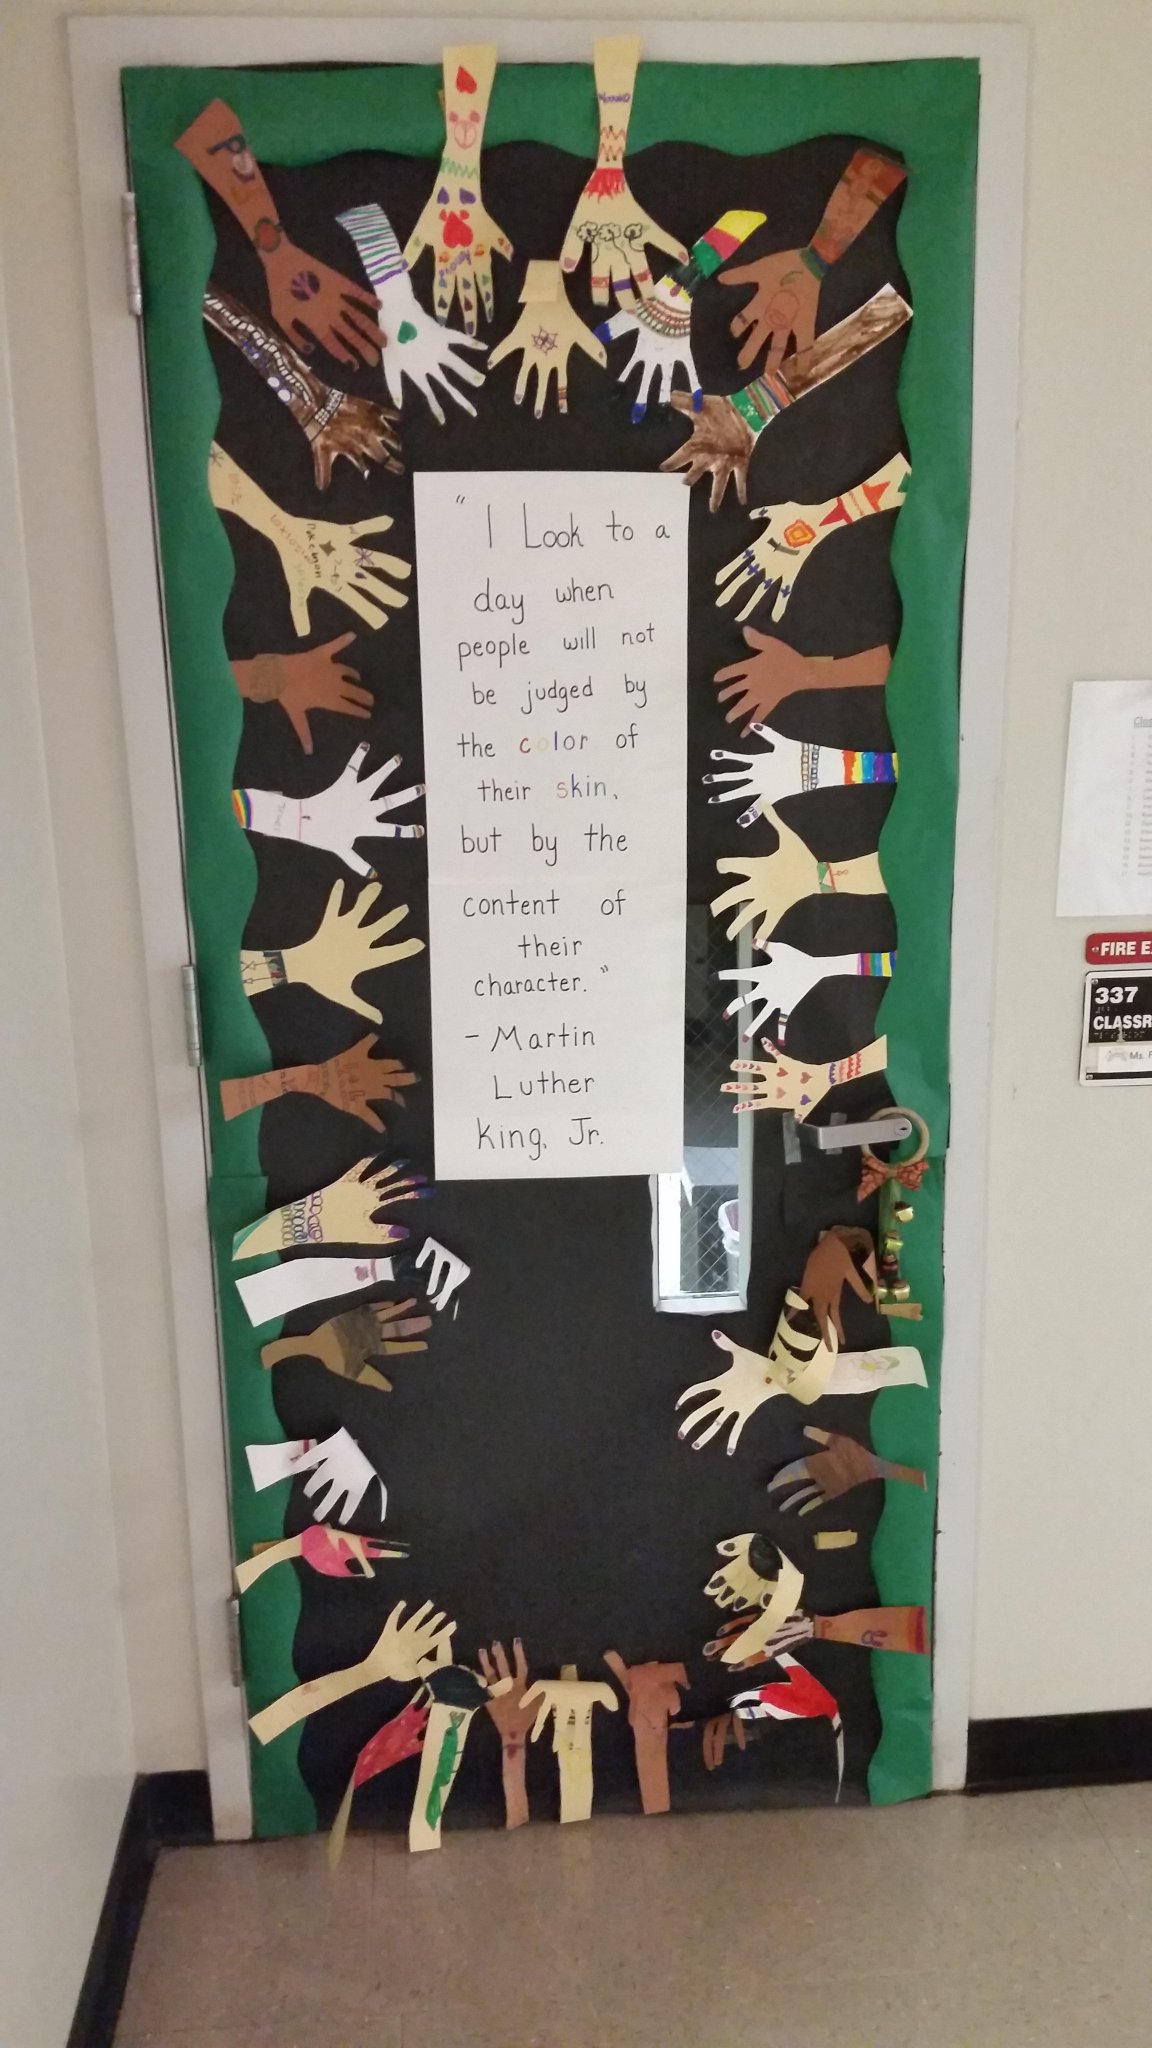 "I Look to a
day when
people will not
be judged by
the color of
their skin,
but by the
content of
their
character."
- Martin
Luther
King, Jr.
Pokemon
FIRE E
337
CLASSR
Ms.